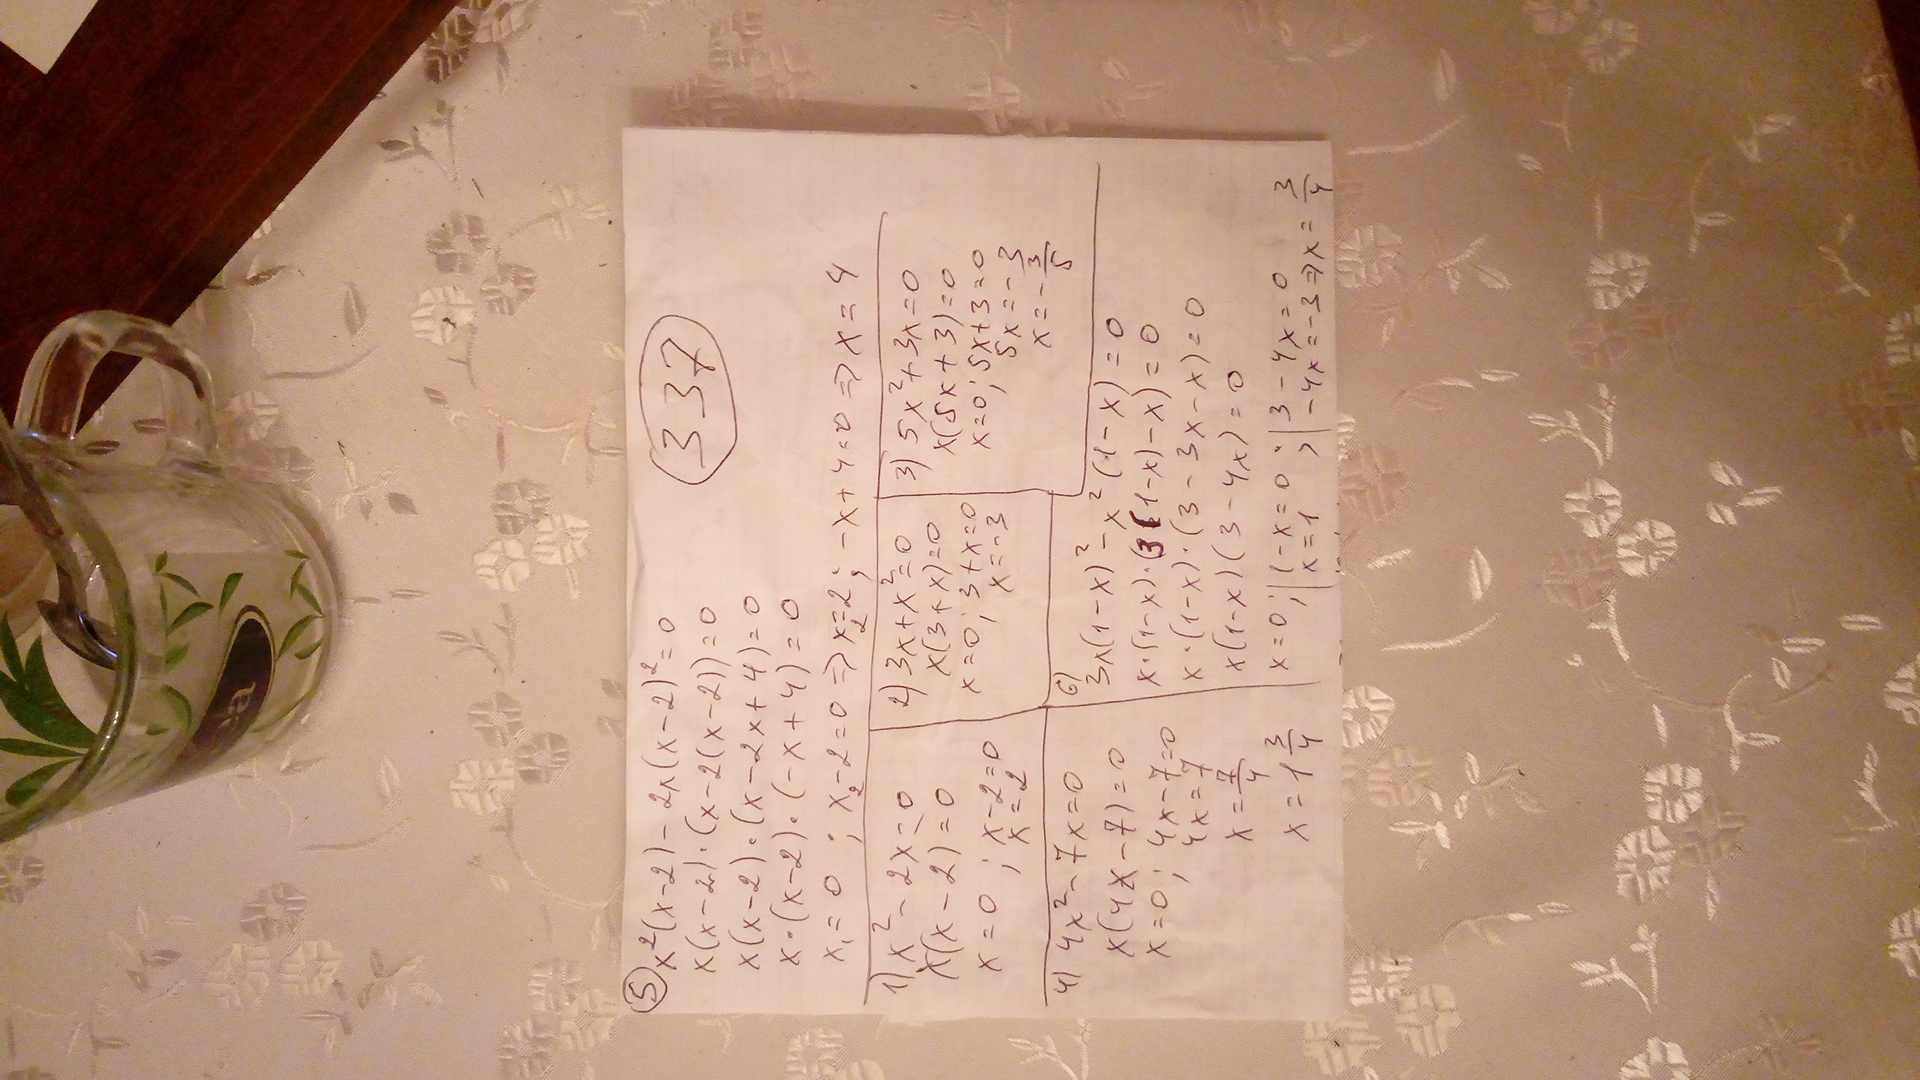 337
5) x²(x-2)-2x(x-2)²=0
x(x-2)·(x-2(x-2))=0
x(x-2)·(x-2x+4)=0
x·(x-2)·(-x+4)=0
x₁=0; x₂-2=0=>x₂=2; -x+4=0=>x=4
1) x²-2x=0
x(x-2)=0
x=0; x-2=0
x=2
2) 3x+x²=0
x(3+x)=0
x=0; 3+x=0
x=-3
3) 5x²+3x=0
x(5x+3)=0
x=0; 5x+3=0
5x=-3
x=-3/5
4) 4x²-7x=0
x(4x-7)=0
x=0; 4x-7=0
4x=7
x=7/4
x=1 3/4
6)
3x(1-x)²-x²(1-x)=0
x·(1-x)·(3(1-x)-x)=0
x·(1-x)·(3-3x-x)=0
x(1-x)(3-4x)=0
x=0; | 1-x=0 ; | 3-4x=0
| x=1 | -4x=-3=>x=3/4